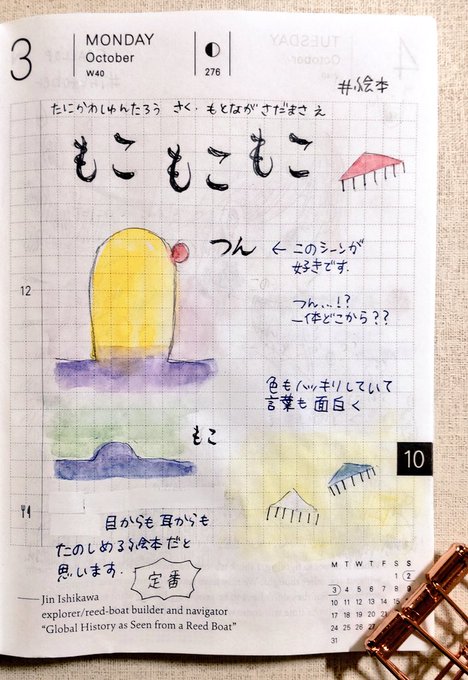 3
MONDAY
October
W40
276
TUESDAY
October
4
#絵本
たにかわしゅんたろう さく・もとなが さだまさ え
もこ もこ もこ
つん
← このシーンが
好きです。
つん…!?
一体どこから??
12
色もハッキリしていて
言葉も面白く
もこ
10
目からも耳からも
たのしめる絵本だと
思います。
定番
Jin Ishikawa
explorer/reed-boat builder and navigator
“Global History as Seen from a Reed Boat”
M T W T F S S
1 2
3 4 5 6 7 8 9
10 11 12 13 14
17 18 19 20 21
24 25 26 27
31